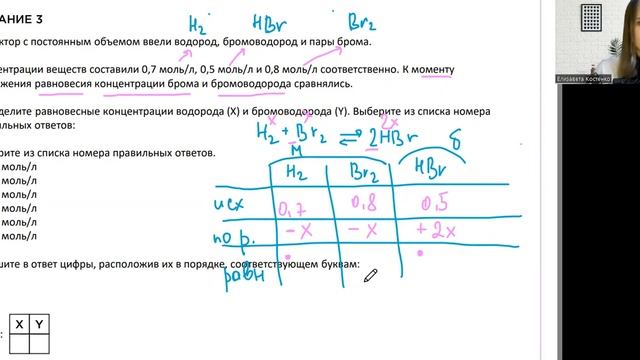 H₂ HBr Br₂
АНИЕ 3
ктор с постоянным объемом ввели водород, бромоводород и пары брома.
ентрации веществ составили 0,7 моль/л, 0,5 моль/л и 0,8 моль/л соответственно. К моменту
жения равновесия концентрации брома и бромоводорода сравнялись.
Елизавета Костенко
делите равновесные концентрации водорода (X) и бромоводорода (Y). Выберите из списка номера
ильных ответов:
x 2x
H₂ + Br₂ ⇌ 2HBr
рите из списка номера правильных ответов.
моль/л
моль/л
моль/л
моль/л
моль/л
моль/л
H₂ Br₂ HBr
исх 0,7 0,8 0,5
по р. -x -x +2x
равн
шите в ответ цифры, расположив их в порядке, соответствующем буквам:
X Y